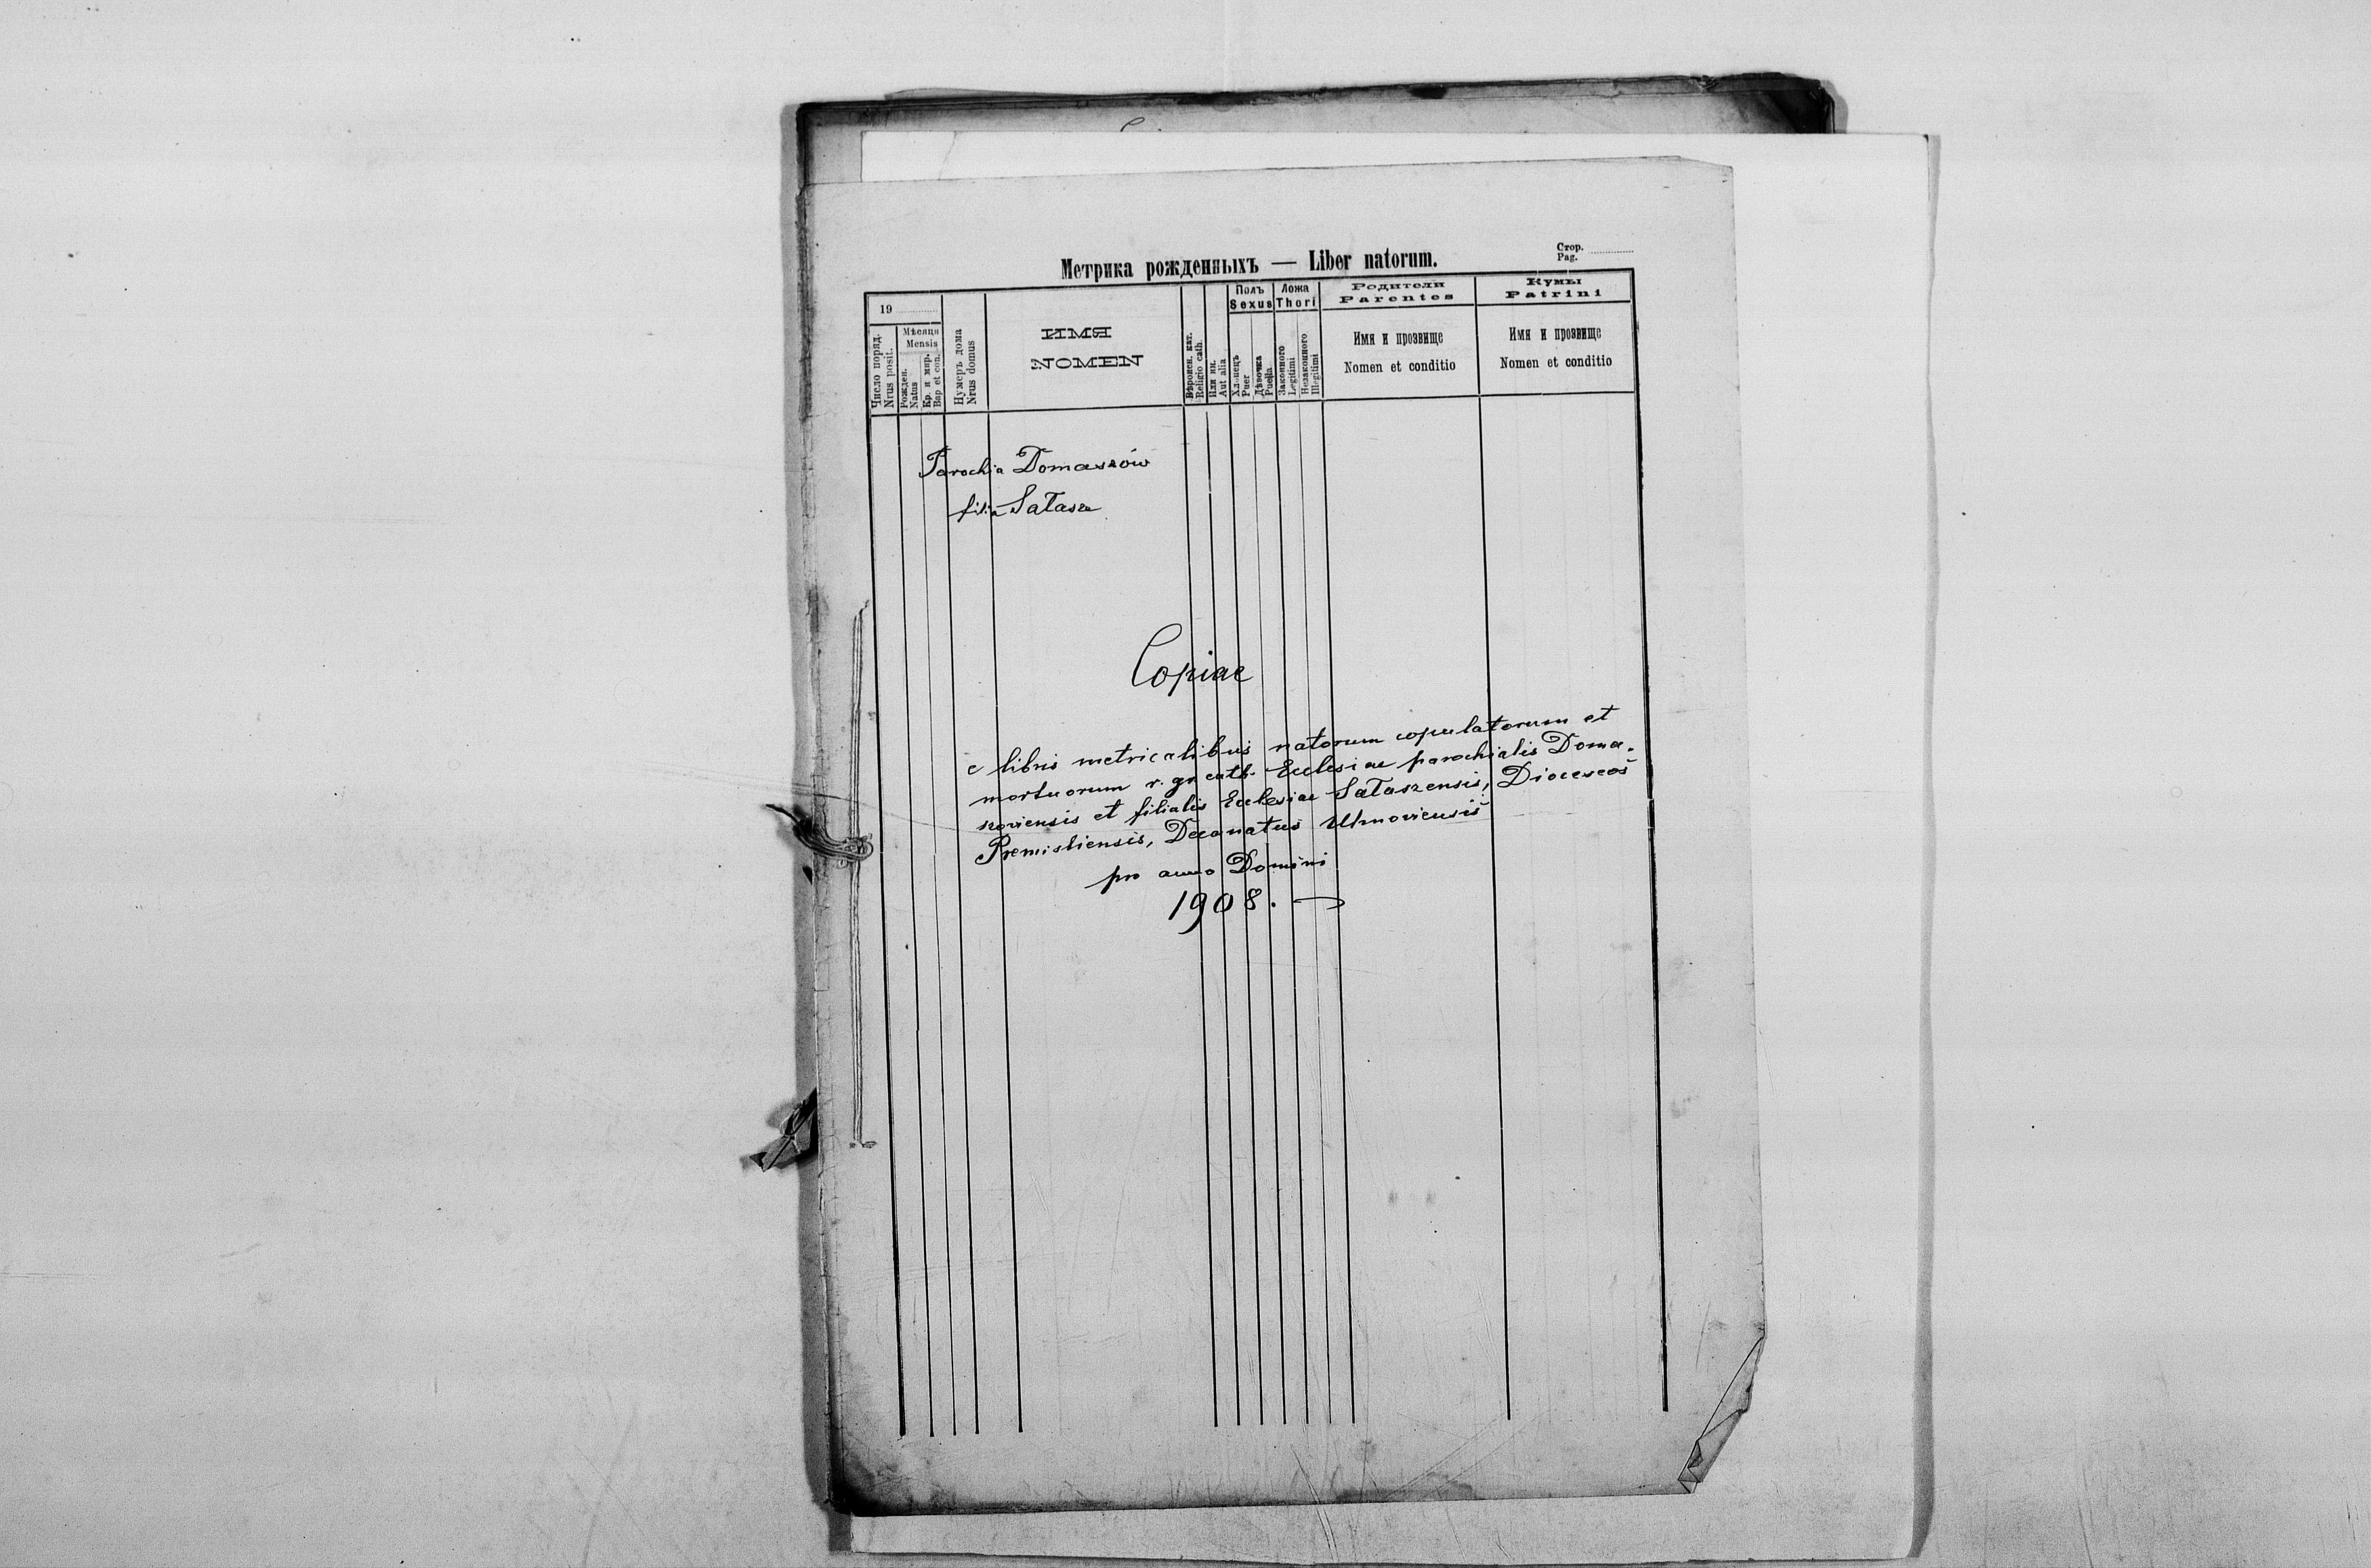 Метрика рожденныхъ — Liber natorum.
Стор.
Pag.
19
Число поряд.
Nrus posit.
Мѣсяця
Mensis
Рожден.
Natus
Кр. и мир.
Bap. et con.
Нумеръ дома
Nrus domus
ИМЯ
NOMEN
Вѣроисп. кат.
Religio cath.
Или ин.
Aut alia
Полъ
Sexus
Хлопецъ
Puer
Дѣвочка
Puella
Ложа
Thori
Законного
Legitimi
Незаконного
Illegitimi
Родители
Parentes
Имя и прозвище
Nomen et conditio
Кумы
Patrini
Имя и прозвище
Nomen et conditio
Parochia Domaszów
filia Sałasze
Copiae
e libris metricalibus natorum copulatorum et
mortuorum r. gr cath. Ecclesiae parochialis Doma-
szoviensis et filialis Ecclesiae Sałaszensis, Dioceseos
Premisliensis, Decanatus Uhnoviensis
pro anno Domini
1908.